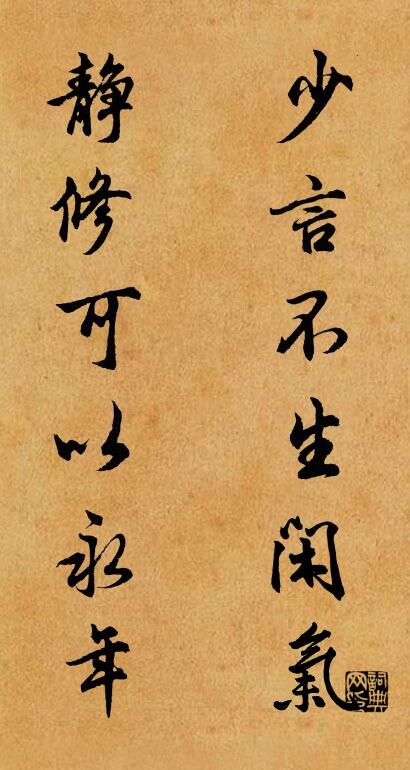 少言不生閑氣
静修可以永年
詞典网